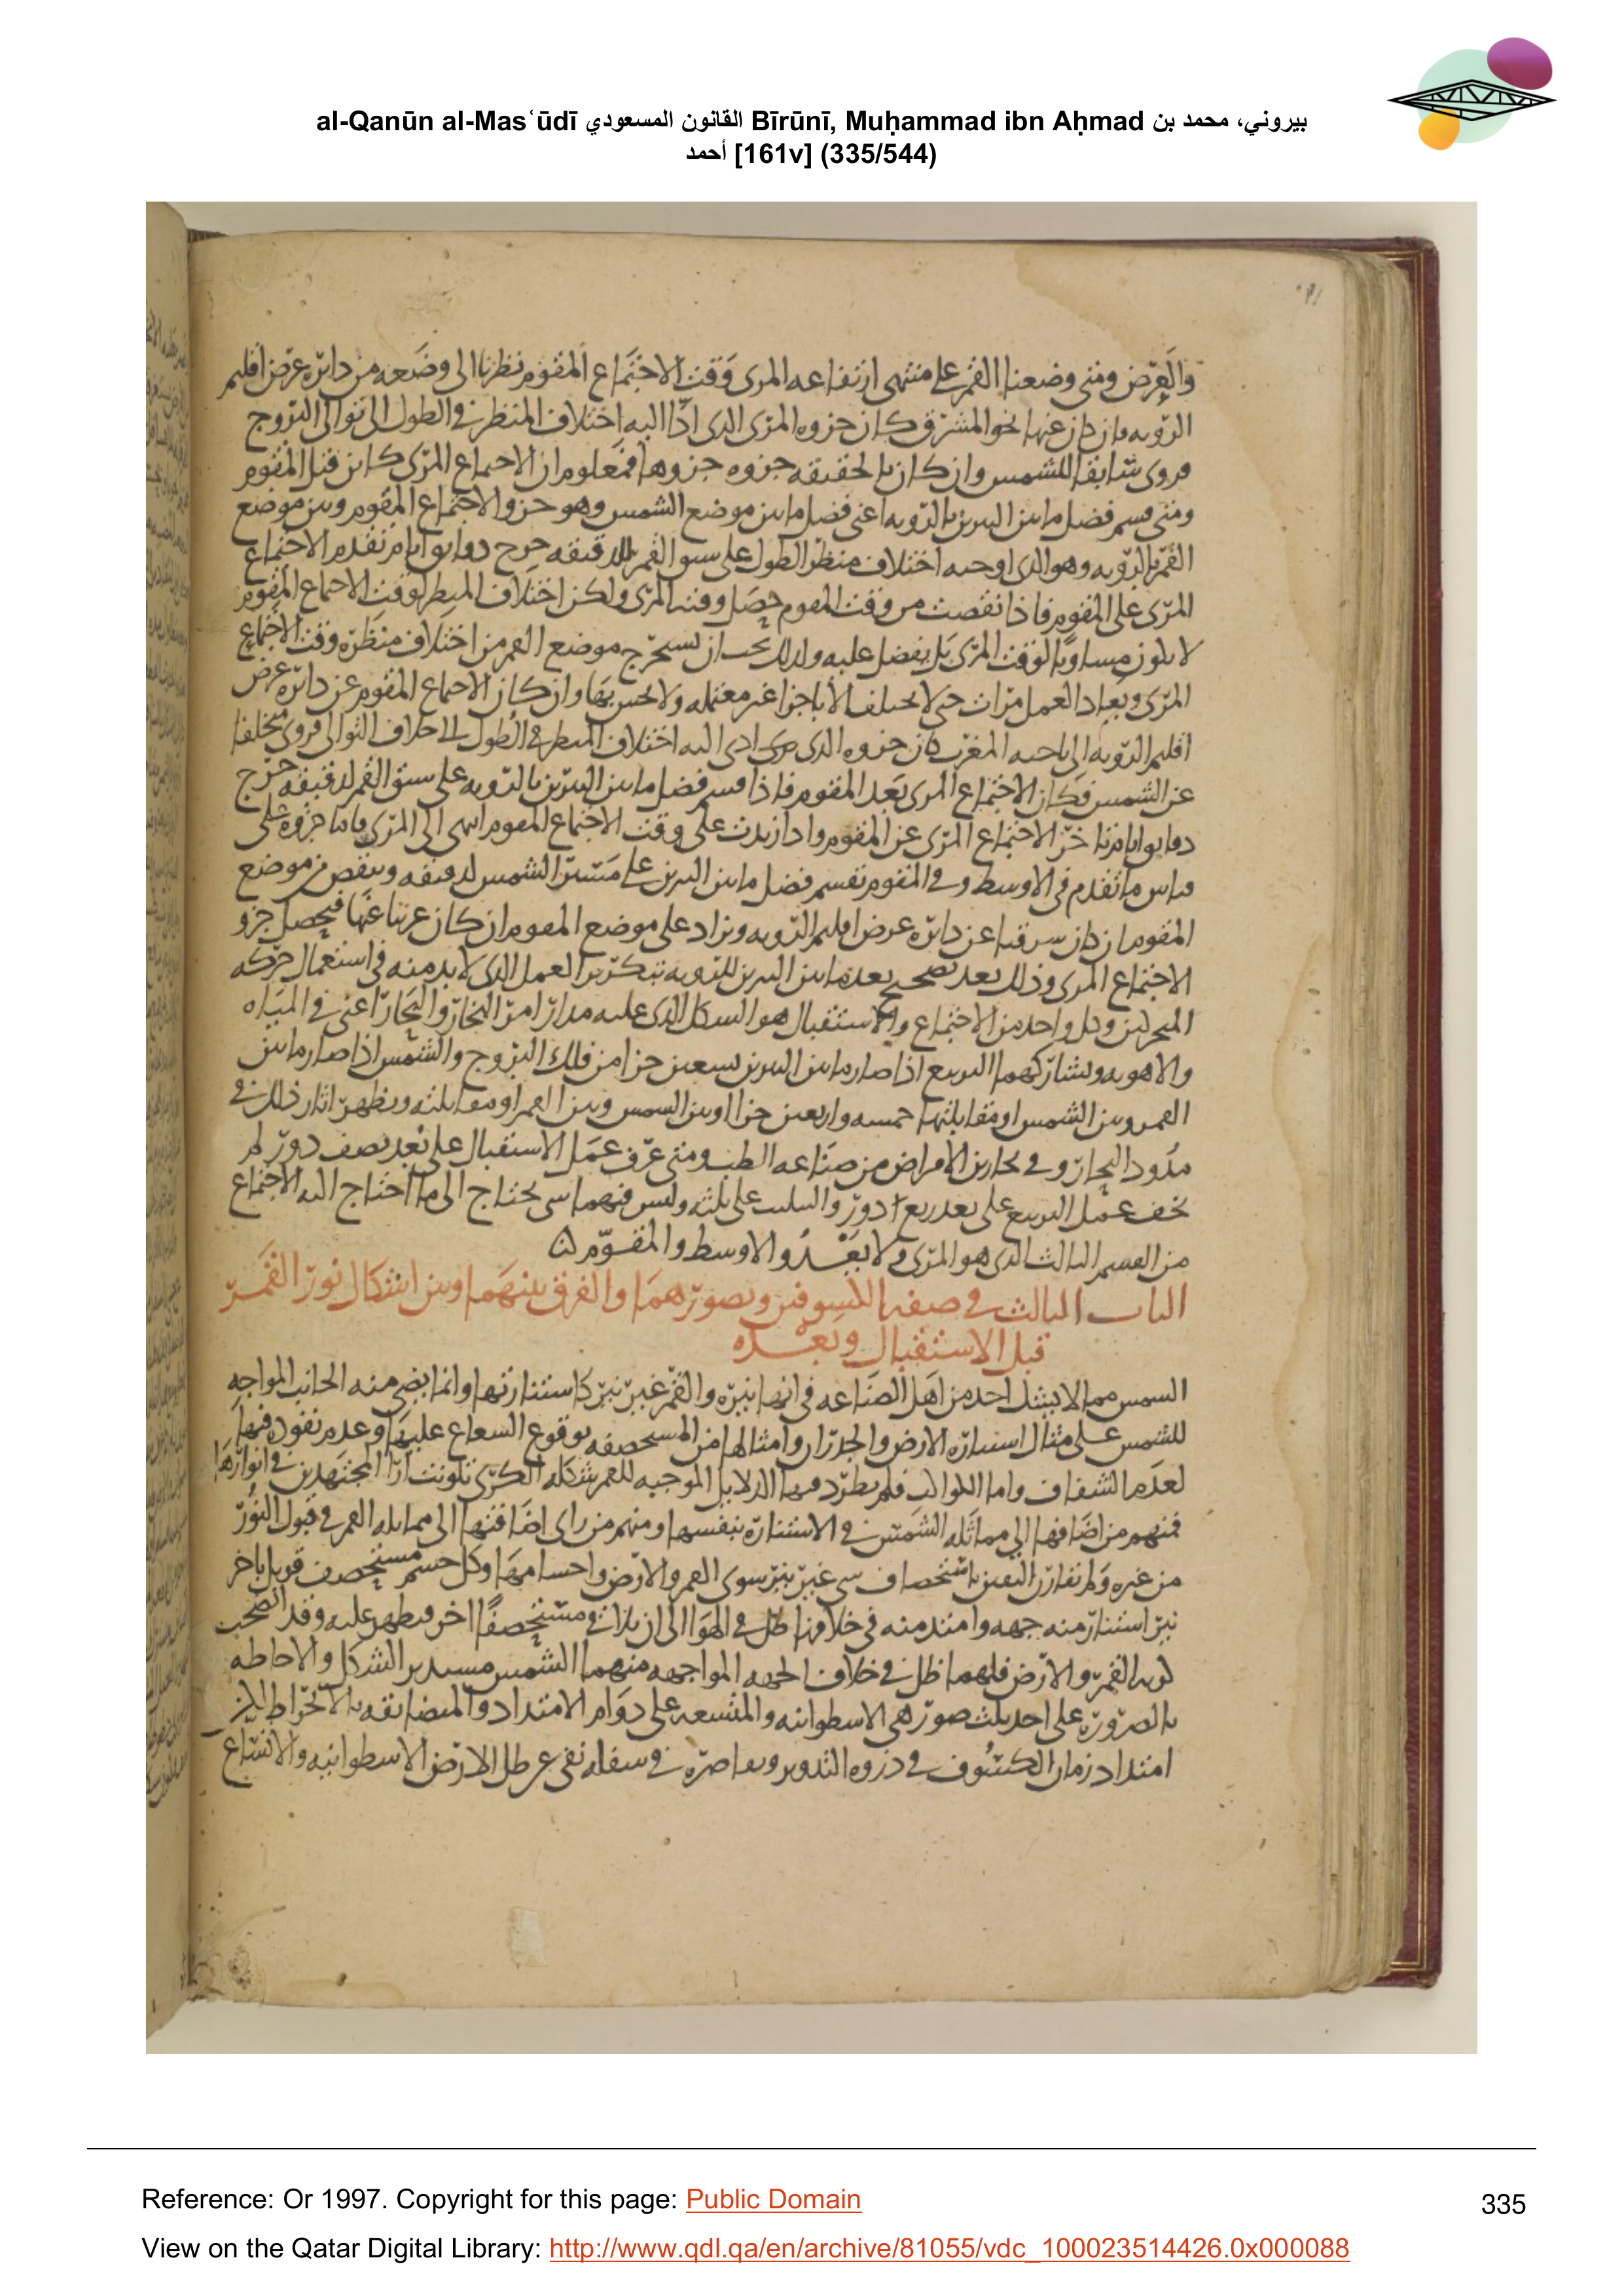 al-Qanūn al-Masʿūdī القانون المسعودي Bīrūnī, Muḥammad ibn Aḥmad بيروني، محمد بن
أحمد [161v] (335/544)
والعرض ومتى وضعنا القمر على منتهى ارتفاعه المرى وقت الاجتماع المقوم نظرنا الى وضعه من دائرة عرض اقليم
الرويه فان كان عنها نحو المشرق كان جزوه المرى الذى ادّا اليه اختلاف المنظر فى الطول الى توالى البروج
فروى سابقا للشمس وان كان بالحقيقه جزوه جزوها فمعلوم ان الاجتماع المرى كاين قبل المقوم
ومتى قسم فضل ما بين النيرين بالرويه اعنى فضل ما بين موضع الشمس وهو جزو الاجتماع المقوم وبين موضع
القمر بالرويه وهو الذى اوجبه اختلاف منظر الطول على سبق القمر للدقيقه خرج دقايق ايام تقدم الاجتماع
المرى على المقوم فاذا نقصت من وقت المقوم حصل وقت المرى ولكن اختلاف المنظر لوقت الاجتماع المقوم
لا يكون مساويا لوقت المرى بل يفضل عليه ولذلك يجب ان يستخرج موضع القمر من اختلاف منظره وقت الاجتماع
المرى ويعاد العمل مرات حتى لا يختلف الا باجزا غير معتمله ولا يحس بها وان كان الاجتماع المقوم عن دائره عرض
اقليم الرويه الى ناحيه المغرب كان جزوه الذى يرى ادى اليه اختلاف المنظر فى الطول الى خلاف التوالى فروى مخلفا
عن الشمس فكان الاجتماع المرى بعد المقوم فاذا قسم فضل ما بين النيرين بالرويه على سبق القمر لدقيقه خرج
دقايق ايام تاخر الاجتماع المرى عن المقوم واذا زيدت على وقت الاجتماع المقوم انتهى الى المرى واما جزوه فعلى
قياس ما تقدم فى الاوسط وفى المقوم نقسم فضل ما بين النيرين على مسير الشمس لدقيقه وينقص من موضع
المقوم ان كان شرقيا عن دائره عرض اقليم الرويه ويزاد على موضع المقوم ان كان غربيا عنها فيحصل جزو
الاجتماع المرى وذلك بعد تصحيح بعد ما بين النيرين للرويه بتكرير العمل الذى لا بد منه فى استعمال حركه
المتحركين وكل واحد من الاجتماع والاستقبال هو الشكل الذى عليه مدار امر البخار والبحار اعنى فى المياه
والاهويه ويشاركهما التربيع اذا صار ما بين النيرين تسعين جزا من فلك البروج والشمس اذا صار ما بين
القمر وبين الشمس او مقابلتها خمسه واربعين جزا او بين الشمس وبين القمر او مقابلته ويظهر اثار ذلك فى
مدود البحار وفى بحارين الامراض من صناعه الطب ومتى عرف عمل الاستقبال على بعد نصف دور لم
يخف عمل التربيع على بعد ربع دور والتثليث على ثلثه وليس فيهما شى يحتاج الى ما احتاج اليه الاجتماع
من القسم الثالث الذى هو المرى ولا يعدو الاوسط والمقوم
الباب الثالث فى صفه الكسوفين وتصورهما والفرق بينهما وبين اشكال نور القمر
قبل الاستقبال وبعده
الشمس مما لا يشك احد من اهل الصناعه فى انها نيره والقمر غير نير كاستنارتها وانما يضى منه الجانب المواجه
للشمس على مثال استناره الارض والجدران وامثالها من المستحصفه بوقوع الشعاع عليها وعدم نفوذه فيها
لعدم الشفاف واما الكواكب فلم يطرد فيها الدلايل الموجبه للقمر شكله الكرى فتلونت ارا المجتهدين فى انوارها
فمنهم من اضافها الى مماثله الشمس فى الاستناره بنفسها ومنهم من راى اضافتها الى مماثله القمر فى قبول النور
من غيره ولم نفارق اليقين باستحصاف شى غير نير سوى القمر والارض واجسامها وكل جسم مستحصف قوبل باخر
نير استنار منه جهه وامتد منه فى خلافها ظل فى الهوا الى ان يلاقى مستحصفا اخر فيظهر عليه وقد اتضحت
كريه القمر والارض فلهما ظل فى خلاف الجهه المواجهه منهما الشمس مستدير الشكل والاحاطه
بالضروره على احد ثلث صور هى الاسطوانيه والمتسعه على دوام الامتداد والمتضايقه بالانخراط لكن
امتداد زمان الكسوف فى ذروه التدوير وتقاصره فى سفله نفى عن ظل الارض الاسطوانيه والاتساع
Reference: Or 1997. Copyright for this page: Public Domain
335
View on the Qatar Digital Library: http://www.qdl.qa/en/archive/81055/vdc_100023514426.0x000088